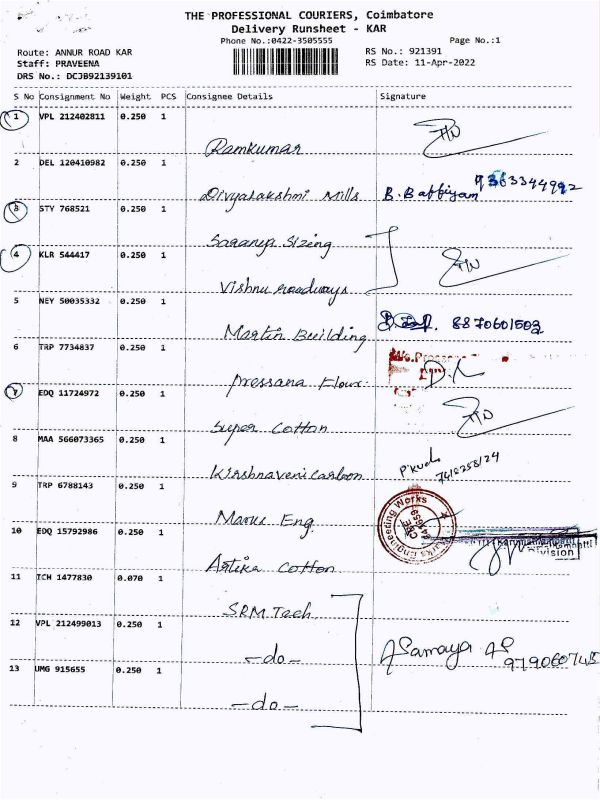 THE PROFESSIONAL COURIERS, Coimbatore
Delivery Runsheet - KAR
Phone No.:0422-3505555 Page No.:1
Route: ANNUR ROAD KAR RS No.: 921391
Staff: PRAVEENA RS Date: 11-Apr-2022
DRS No.: DCJB92139101
S No Consignment No Weight PCS Consignee Details Signature
1 VPL 212402811 0.250 1
Ramkumar
2 DEL 120410982 0.250 1
Divyalakshmi Mills B. Baffiyam 9363344992
3 STY 768521 0.250 1
Sizing
4 KLR 544417 0.250 1
Vishnu roadways
5 NEY 50035332 0.250 1
Martin Building 8870601502
6 TRP 7734837 0.250 1
Pressana Flour
7 EDQ 11724972 0.250 1
Super Cotton
8 MAA 566073365 0.250 1
Krishnaveni Carbon
9 TRP 6788143 0.250 1
Eng. Engineering Works
10 EDQ 15792986 0.250 1
Artika Cotton
11 TCH 1477830 0.070 1
SRM Tech
12 VPL 212499013 0.250 1
-do-
13 UMG 915655 0.250 1
-do-